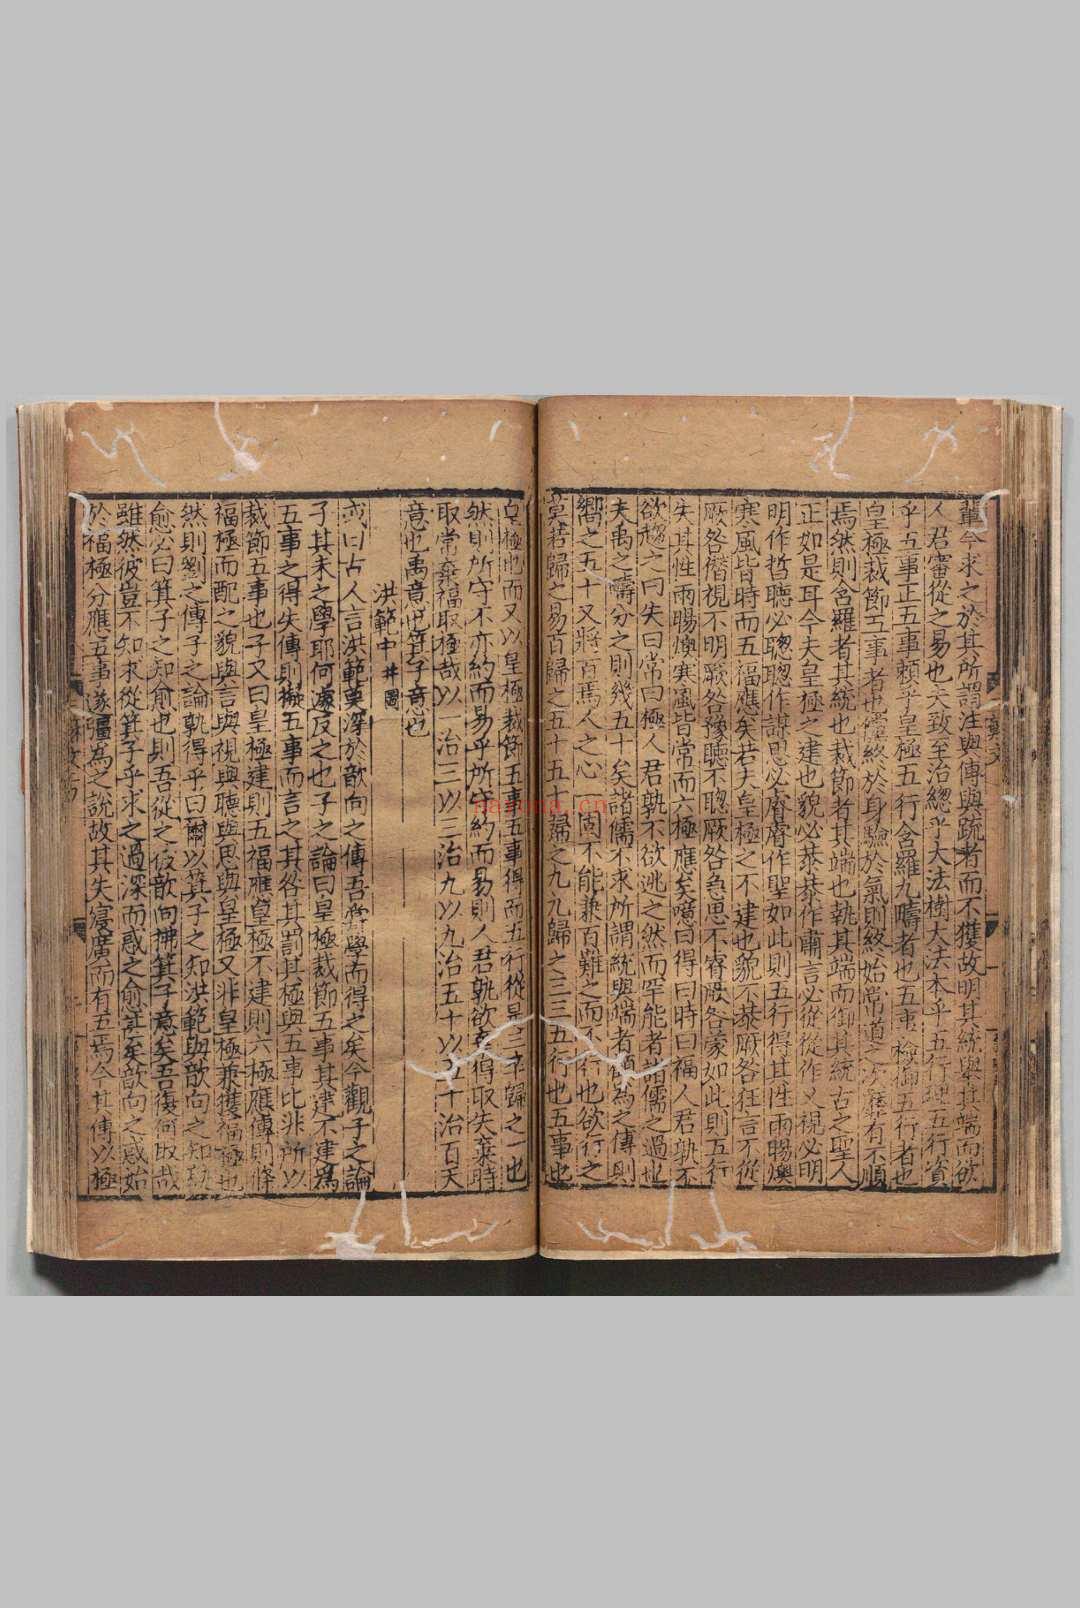 輩今求之於其所謂注與傳與疏者而不獲故明其統舉其端而欲
人君審從之易也夫致至治總乎大法樹大法本乎五行理五行資
乎五事正五事頼乎皇極五行含羅九疇者也五事檢御五行者也
皇極裁節五事者也儻終於身驗於氣則終始常道之次靡有不順
焉然則含羅者其統也裁節者其端也執其端而御其統古之聖人
正如是耳今夫皇極之建也貌必恭恭作肅言必從從作乂視必明
明作哲聽必聰聰作謀思必睿睿作聖如此則五行得其性雨暘燠
寒風皆時而五福應矣若夫皇極之不建也貌不恭厥咎狂言不從
厥咎僭視不明厥咎豫聽不聰厥咎急思不睿厥咎蒙如此則五行
失其性雨暘燠寒風皆常而六極應矣噫曰得曰時曰福人君孰不
欲趨之曰失曰常曰極人君孰不欲逃之然而罕能者諸儒之過也
夫禹之疇分之則幾五十矣諸儒不求所謂統與端者顧為之傳則
嚮之五十又將百焉人之心固不能兼百難之而不行也欲行之
莫若歸之易百歸之五十五十歸之九九歸之三三五行也五事也
皇極也而又以皇極裁節五事五事得而五行從是三卒歸之一也
然則所守不亦約而易乎所守約而易則人君孰欲棄得取失棄時
取常棄福取極哉以一治三以三治九以九治五十以五十治百天
意也禹意也箕子意也
洪範中 并圖
或曰古人言洪範莫深於歆向之傳吾嘗學而得之矣今觀子之論
子其未之學耶何遽反之也子之論曰皇極裁節五事其建不建為
五事之得失傳則擬五事而言之其咎其罰其極與五事比非所以
裁節五事也子又曰皇極建則五福應皇極不建則六極應傳則條
福極而配之貌與言與視與聽與思與皇極又非皇極兼獲福極也
然則劉之傳子之論孰得乎曰爾以箕子之知洪範與歆向之知孰
愈必曰箕子之知愈也則吾從之彼歆向拂箕子意矣吾復何取哉
雖然彼豈不知求從箕子乎求之過深而惑之愈甚矣歆向之惑始
於福極分應五事遂彊為之說故其失寖廣而有五焉今其傳以極